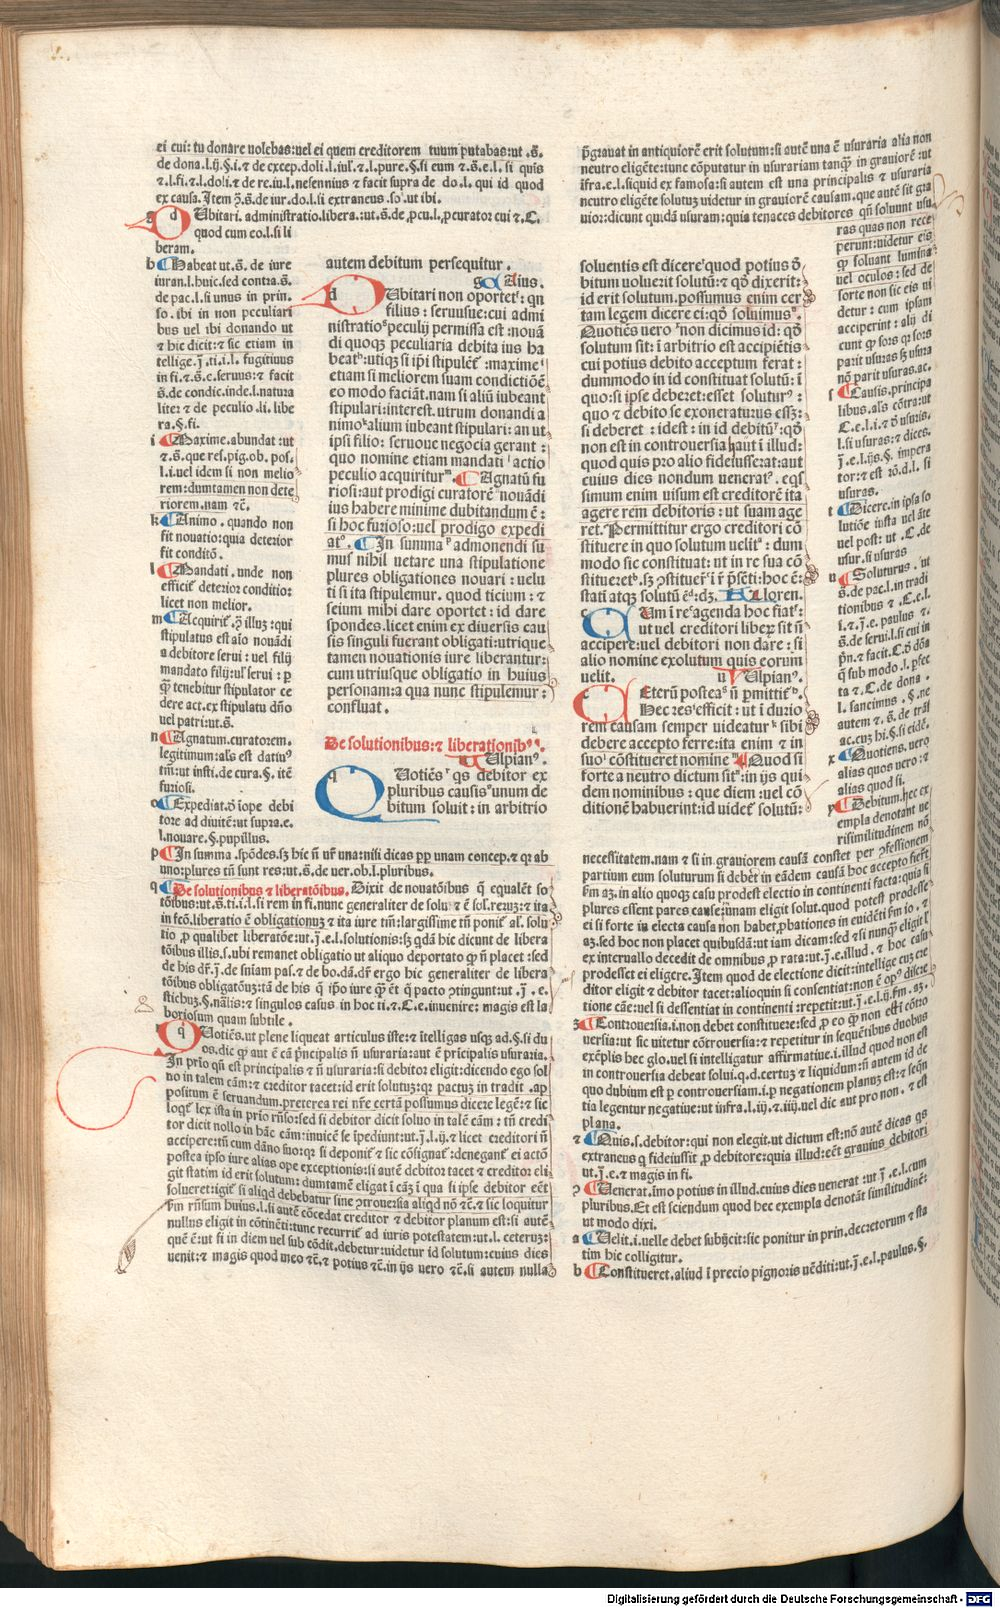 ei cui: tu donare volebas: vel ei quem creditorem tuum putabas: ut .s̄.
de dona.l.ij.§.i. ⁊ de excep.doli.l.iulꝰ. ⁊.l.pure.§.si cum ⁊.s̄.e.l.si quis
⁊.l.fi.⁊.l.doli.⁊ de re.iu.l.nesennius ⁊ facit supra de do.l. qui id quod
ex causa. Item ꝙ̄.s̄.de iur.do.l.si extraneus .soꝰ.ut ibi.
g d Ubitari. administratio.libera:ut.s̄.de.pcu.l.ꝓcurator cui ⁊.C.
quod cum eo.l.si li
beram.
h Habeat ut.s̄. de iure
iuran.l.huic.sed contra.s̄.
de pac.l.si unus in prin.
so.ibi in non peculiari
bus vel ibi donando ut
⁊ hic dicit:⁊ sic etiam in
tellige.j̄.ti.i.l. fugitivus
in fi.⁊.s̄.e.servus:⁊ facit
s̄.de condic.inde.l.natura
liter ⁊ de peculio .li.libe
ra.§.fi.
i Maxime.abundat:ut
⁊.s̄.que res.pig.ob. pos.
l.i.vel idem si non melio
rem:dumtamen non dete
riorem.nam ⁊c̄.
k Animo. quando non
fit novatio:quia deterior
fit conditō.
l Mandati. unde non
efficit deterior conditio:
licet non melior.
m Acquirit̄.ꝙ̄ illuz:qui
stipulatus est aīo novādi
a debitore servi: vel filij
mandato filij:vꝉ servi: ꝑ
ꝙ̄ tenebitur stipulator ce
dere act.ex stipulatu dn̄o
vel patri:ut.s̄.
n Agnatum.curatorem.
legitimum:als̄ est dativꝰ
tm̄:ut insti.de cura.§. itē
furiosi.
o Expediat.ꝙ̄ iope debi
tore ad divitē:ut supra.e.
l.novare.§.pupillus.
autem debitum persequitur.
Gaius.
d Ubitari non oportet: qn̄
filius: servusve:cui admi
nistratio peculij permissa est:nouā
di quoqꝫ peculiaria debita ius ha
beat:utiqꝫ si ip̄i stipulēt̄ :maxime
etiam si meliorem suam condictiōē
eo modo faciāt.nam si aliū iubeant
stipulari:interest.utrum donandi a
nimo alium iubeant stipulari: an ut
ipsi filio: servove negocia gerant:
quo nomine etiam mandati actio
peculio acquiritur. Agnatū fu
riosi:aut prodigi curatorē nouādi
ius habere minime dubitandum ē:
si hoc furioso:vel prodigo expedi
at. In summa admonendi su
mus nihil vetare una stipulatione
plures obligationes novari: velu
ti si ita stipulemur. quod ticium: ⁊
seium mihi dare oportet: id dare
spondes.licet enim ex diversis cau
sis singuli fuerant obligati:utrique
tamen novationis iure liberantur:
cum utriusque obligatio in huius
personam:a qua nunc stipulemur:
confluat.
De solutionibus:⁊ liberationibꝰ.
Ulpianꝰ.
q Uotiēs qs debitor ex
pluribus causis unum de
bitum soluit: in arbitrio
p In summa .spōdes.sꝫ hic n̄ ur̄ una:nisi dicas ꝑp unam concep.⁊ qr ab
uno:plures tn̄ sunt res:ut.s̄.de ver.ob.l.pluribus.
q De solutionibus ⁊ liberatōibus. Dixit de novatōibus q̄ equalēt so
tōibus:ut.s̄.ti.i.l.si rem in fi.nunc generaliter de solu ⁊ ē sol.reuz:⁊ ita
in fcō.liberatio ē obligationuz ⁊ ita iure tm̄:largissime tn̄ ponit̄ al̄. solu
tio ꝓ qualibet liberatōe:ut.j̄.e.l.solutionis:sꝫ qdā hic dicunt de libera
tōibus illis.s.ubi remanet obligatio ut aliquo deportato ꝙ n̄ placet:sed
de his dr̄.j̄.de sn̄iam pas.⁊ de bo.dā.dr̄ ergo hic generaliter de libera
tōibus obligatōuz:tā de his q̄ ip̄o iure q̄ ēt q̄ pacto ꝯtingunt:ut.j̄.e.
stichuz.§.nālis:⁊ singulos casus in hoc ti.⁊.C.e.invenire: magis est la
boriosum quam subtile.
r q Uotiēs.ut plene liqueat articulus iste:⁊ ītelligas usqꝫ ad.§.si du
os.dic ꝙ aut ē cā pn̄cipalis n̄ usuraria:aut ē pricipalis usuraria.
In prio qn̄ est principalis ⁊ n̄ usuraria:si debitor eligit:dicendo ego sol
vo in talem cām:⁊ creditor tacet:id erit solutuz:qr pactuz in tradit.ap
positum ē servandum.preterea rei nr̄e certā possumus dicere legē:⁊ sic
loqt̄ lex ista in prio rn̄so:sed si debitor dicit soluo in talē cām: tn̄ credi
tor dicit nollo in hāc cām:invicē se īpediunt:ut.j̄.l.ij.⁊ licet creditori n̄
accipere:tn̄ cum dāno suo:qr si deponit̄ ⁊ sic cōsignat̄:denegant̄ ei actō
postea ipso iure alias ope exceptionis:si autē debitor tacet ⁊ creditor eli
git statim id erit solutum: dumtamē eligat ī cāz ī qua si ipse debitor eēt
solveret:igit̄ si aliqd debebatur sine ꝯtroversia aliqd nō ⁊c̄.⁊ sic loquitur
ẜm rn̄sum huius.l.si autē cōcedat creditor ⁊ debitor planum est:si autē
nullus eligit in cōtinēti:tunc recurrit̄ ad iuris potestatem:ut.l. ceteruz:
quē ē:ut si in diem vel sub cōdit.debetur:videtur id solutum:cuius dies
venit:⁊ magis quod meo ⁊c̄.⁊ potius ⁊c̄.in ijs vero ⁊c̄.si autem nulla
p̄gravat in antiquiorē erit solutum:si autē una ē usuraria alia non
neutro eligēte:tunc cōputatur in usurariam tanqꝫ in graviorē:ut
īfra.e.l.siquid ex famosa:si autem est una principalis ⁊ usuraria
neutro eligēte solutuz videtur in graviorē causam.que autē sit gra
vior:dicunt quidā usuram:quia tenaces debitores qn̄ solvunt usu
ras quas non rece
perunt:videtur eis
ꝙ soluant lumina
vel oculos: sed de
forte non sic eis vi
detur: cum ipsam
acciperint: alij di
cunt ꝙ sors qr sors
parit usuras sꝫ usura
nō parit usuras.ac.
s Causis.principa
libus.als̄ cōtra:ut
C.e.l.i.⁊ ō usuris.
l.si usuras:⁊ dices.
j̄.e.l.ijs.§. impera
tor:⁊ est rō.d.l. si
usuras.
t Dicere.in ipsa so
lutiōe iusta vel āte
vel post: ut .C.de
usur.si usuras
u Soluturus . ut
s̄.de pac.l.in tradi
tionibus ⁊ .C.e.l.
i.⁊.j̄.e. paulus ⁊.
s̄.de servi.l.si cui in
pn̄.⁊ facit.C.ō dōa
q̄ sub modo.l. ꝑfec
ta ⁊.C.de dona .
l. sancimus . §. ne
autem ⁊. s̄. de trāſ
ac.cuz hi.§.si eidē.
x Quotiens.vero
alias quos vero:⁊
alias quod si.
y Debitum.hec ex
empla denotant ve
risimilitudinem nō
soluentis est dicere quod potius ō
bitum voluerit solutū:⁊ qō dixerit:
id erit solutum.possumus enim cer
tam legem dicere ei:qō soluimus.
Quotiēs vero non dicimus id: qō
solutum sit: ī arbitrio est accipiētis
cui potius debito acceptum ferat:
dummodo in id constituat solutū: ī
quo:si ipse deberet:esset solutur:
quo ⁊ debito se exoneraturus essꝫ:
si deberet : idest: in id debitū:qō
non est in controversia haut ī illud:
quod quis pro alio fideiusserat:aut
cuius dies nondum venerat. eqs
simum enim visum est creditorē ita
agere rem debitoris: ut suam age
ret. Permittitur ergo creditori cō
stituere in quo solutum velit : dum
modo sic constituat: ut in re sua cō
stitueret. sꝫ ꝯstituer̄ ī p̄sēti:hoc ē:
stati atqꝫ solutū ē:dꝫ. Floren.
c Um ī re agenda hoc fiat:
ut vel creditori liberꝫ sit n̄
accipere:vel debitori non dare: si
alio nomine exolutum quis eorum
velit. u Ulpianꝰ.
c Eterū postea n̄ ꝑmittit̄.
Hec res efficit: ut ī durio
rem causam semper videatur sibi
debere accepto ferre:ita enim ⁊ in
suo cōstitueret nomine Quod si
forte a neutro dictum sit:in ijs qui
dem nominibus: que diem:vel cō
ditionē habuerint:id videt̄ solutū:
necessitatem.nam ⁊ si in graviorem causā constet per ꝯfessionem
partium eum soluturum si debēt in eādem causā hoc accepto fieri
ẜm az.in alio quoqꝫ casu prodest electio in continenti facta:quia si
plures essent pares cause:unam eligit solut.quod potest prodesse
ei si forte in electa causa non habet ꝓbationes in evidēti ẜm io.⁊
az.sed hoc non placet quibusdā:ut iam dicam:sed ⁊ si nunqꝫ eligit
ex intervallo decedit de omnibus ꝓ rata:ut.j̄.e.illud.⁊ hoc casu
prodesset ei eligere. Item quod de electione dicit:intellige cuz cre
ditor eligit ⁊ debitor tacet:alioquin si consentiat:non ē opꝰ discre
tione cāe:vel si dessentiat in continenti:repetit:ut.j̄.e.l.ij.ẜm.az.
z Controversia.i.non debet constituere:sed ꝓ eo ꝙ non est cōtro
versia:ut sic vitetur cōtroversia:⁊ repetitur in sequētibus duobus
exēplis hec glo.vel si intelligatur affirmative.i.illud quod non est
in controversia debeat solvi.q.d.certuz ⁊ liquidum:n̄ autem id de
quo dubium est ꝓ controversiam.i.ꝑ negationem planuz est:⁊ seqn̄
tia legentur negative:ut infra.l.iij.⁊.iiij.vel dic aut pro non.⁊ est
plana.
⁊ Quis.s.debitor:qui non elegit.ut dictum est:nō autē dicas qs
extraneus q̄ fideiussit ꝓ debitore:quia illud:eēt gravius debitori
ut.j̄.e.⁊ magis in fi.
ꝯ Venerat.imo potius in illud.cuius dies venerat :ut j̄.e.l.cum
pluribus.Et est sciendum quod hec exempla denotāt similitudinē:
ut modo dixi.
a Velit.i.velle debet subijcit:sic ponitur in prin.decretorum ⁊ sta
tim hic colligitur.
b Constitueret.aliud ī precio pignoris vēditi:ut.j̄.e.l.paulus.§.
Digitalisierung gefördert durch die Deutsche Forschungsgemeinschaft - DFG